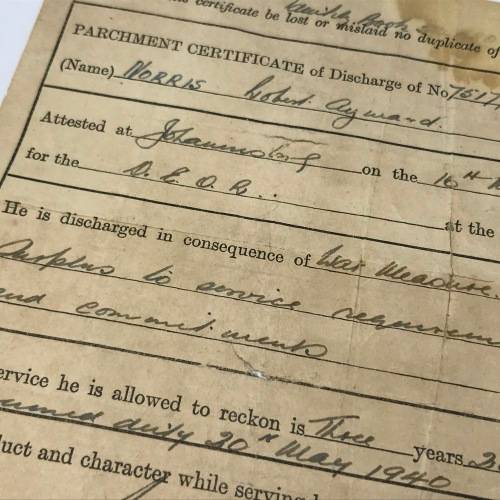 certificate be lost or mislaid no duplicate of
PARCHMENT CERTIFICATE of Discharge of No 7517
(Name) NORRIS Robert Aymard.
Attested at Johannesburg on the 16th
for the D. E. O. R. at the
He is discharged in consequence of War Measure
Surplus to service requirem
and commitments
ervice he is allowed to reckon is Three years
umed duty 20th May 1940
duct and character while serving